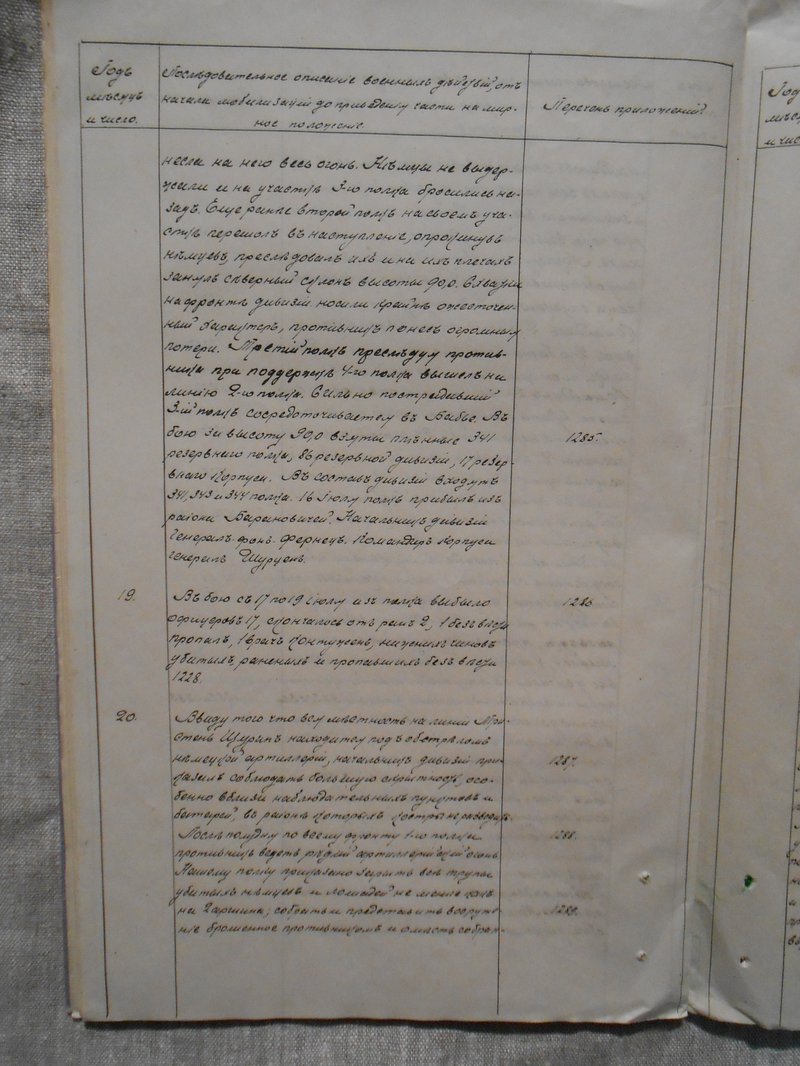 Годъ
мѣсяцъ
и число.
Послѣдовательное описаніе военныхъ дѣйствій, отъ
начала мобилизаціи до приведенія части на мир-
ное положеніе.
Перечень приложеній.
несла на него весь огонь. Нѣмцы не выдер-
жали и на участкѣ 3-го полка бросились на-
задъ. Еще ранѣе второй полкъ на своемъ уча-
сткѣ перешелъ въ наступленіе, опрокинувъ
нѣмцевъ, преслѣдовалъ ихъ и на ихъ плечахъ
занялъ сѣверный склонъ высоты 90,0. Схватки
на фронтѣ дивизіи носили крайнѣ ожесточен-
ный характеръ, противникъ понесъ огромныя
потери. Третій полкъ преслѣдуя против-
ника при поддержкѣ 4-го полка вышелъ на
линію 2-го полка. Сильно пострадавшій
3-ій полкъ сосредоточивается въ Бабье. Въ
бою за высоту 90,0 взяты плѣнные 341
резервнаго полка, 86 резервной дивизіи, 17 резер-
внаго корпуса. Въ составъ дивизіи входятъ
341, 343 и 344 полка. 16 іюля полкъ прибылъ изъ
района Барановичей. Начальникъ дивизіи
Генералъ фонъ Командиръ корпуса
генералъ
1285.
19.
Въ бою съ 17 по 19 іюля изъ полка выбыло
офицеровъ 17, скончалось отъ ранъ 2, 1 безъ вѣсти
пропалъ, 1 врачъ контуженъ, нижнихъ чиновъ
убитыхъ, раненыхъ и пропавшихъ безъ вѣсти
1228.
1286
20.
Ввиду того что вся мѣстность на линіи
находится подъ обстрѣломъ
нѣмецкой артиллеріи, начальникъ дивизіи при-
казалъ соблюдать большую скрытность, осо-
бенно вблизи наблюдательныхъ пунктовъ и
батарей, въ районѣ которыхъ костры не разводить.
Послѣ полудня по всему фронту 1-го полка
противникъ ведетъ рѣдкій артиллерійскій огонь.
Нашему полку приказано зарыть всѣ трупы
убитыхъ нѣмцевъ и лошадей не менѣе какъ
на 2 аршина; собрать и представить вооруже-
ніе брошенное противникомъ и
1287.
1288.
1289.
Годъ